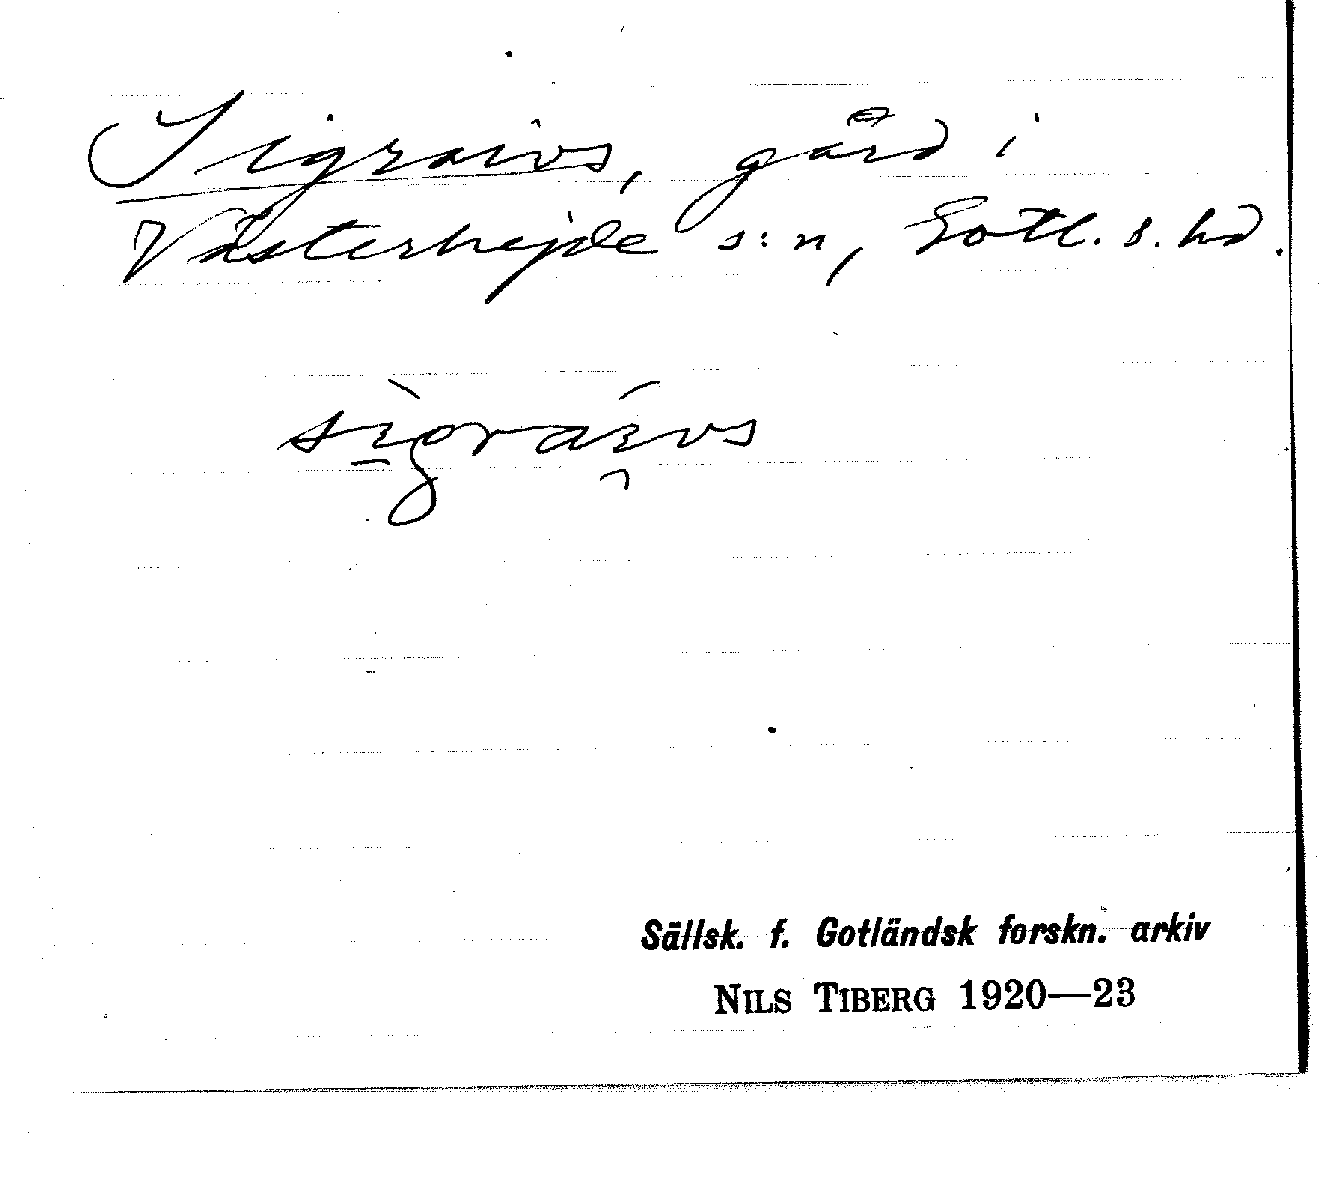 Sigraivs, gård i
Västerhejde s:n, Gotl. s. hd.
sìgráivs
Sällsk. f. Gotländsk forskn. arkiv
NILS TIBERG 1920—23